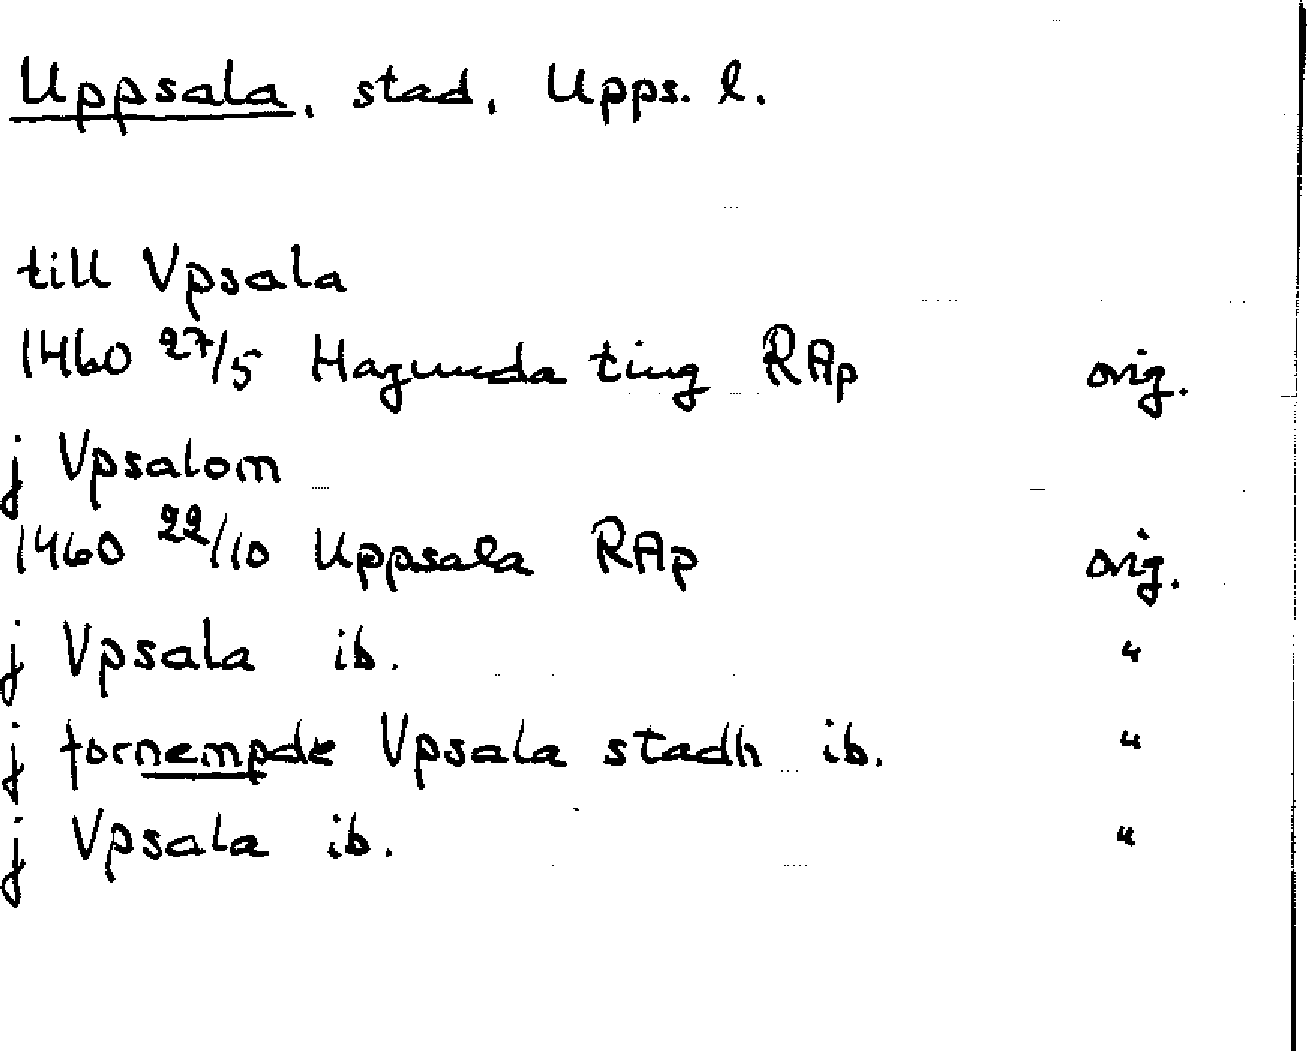 Uppsala, stad, Upps. l.
till Vpsala
1460 27/5 Hagunda ting RAp orig.
j Vpsalom
1460 22/10 Uppsala RAp orig.
j Vpsala ib. "
j fornempde Vpsala stadh ib. "
j Vpsala ib. "